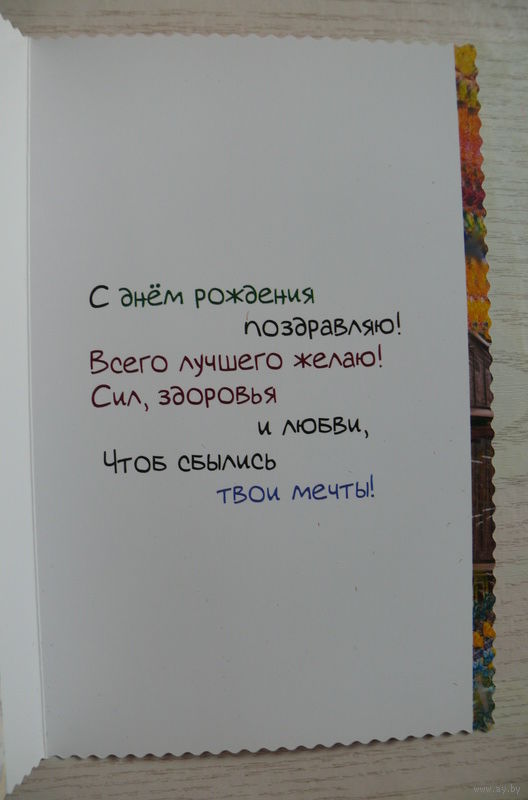 С днём рождения
поздравляю!
Всего лучшего желаю!
Сил, здоровья
и любви,
Чтоб сбылись
твои мечты!
www.ay.by